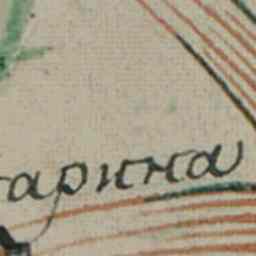 арина